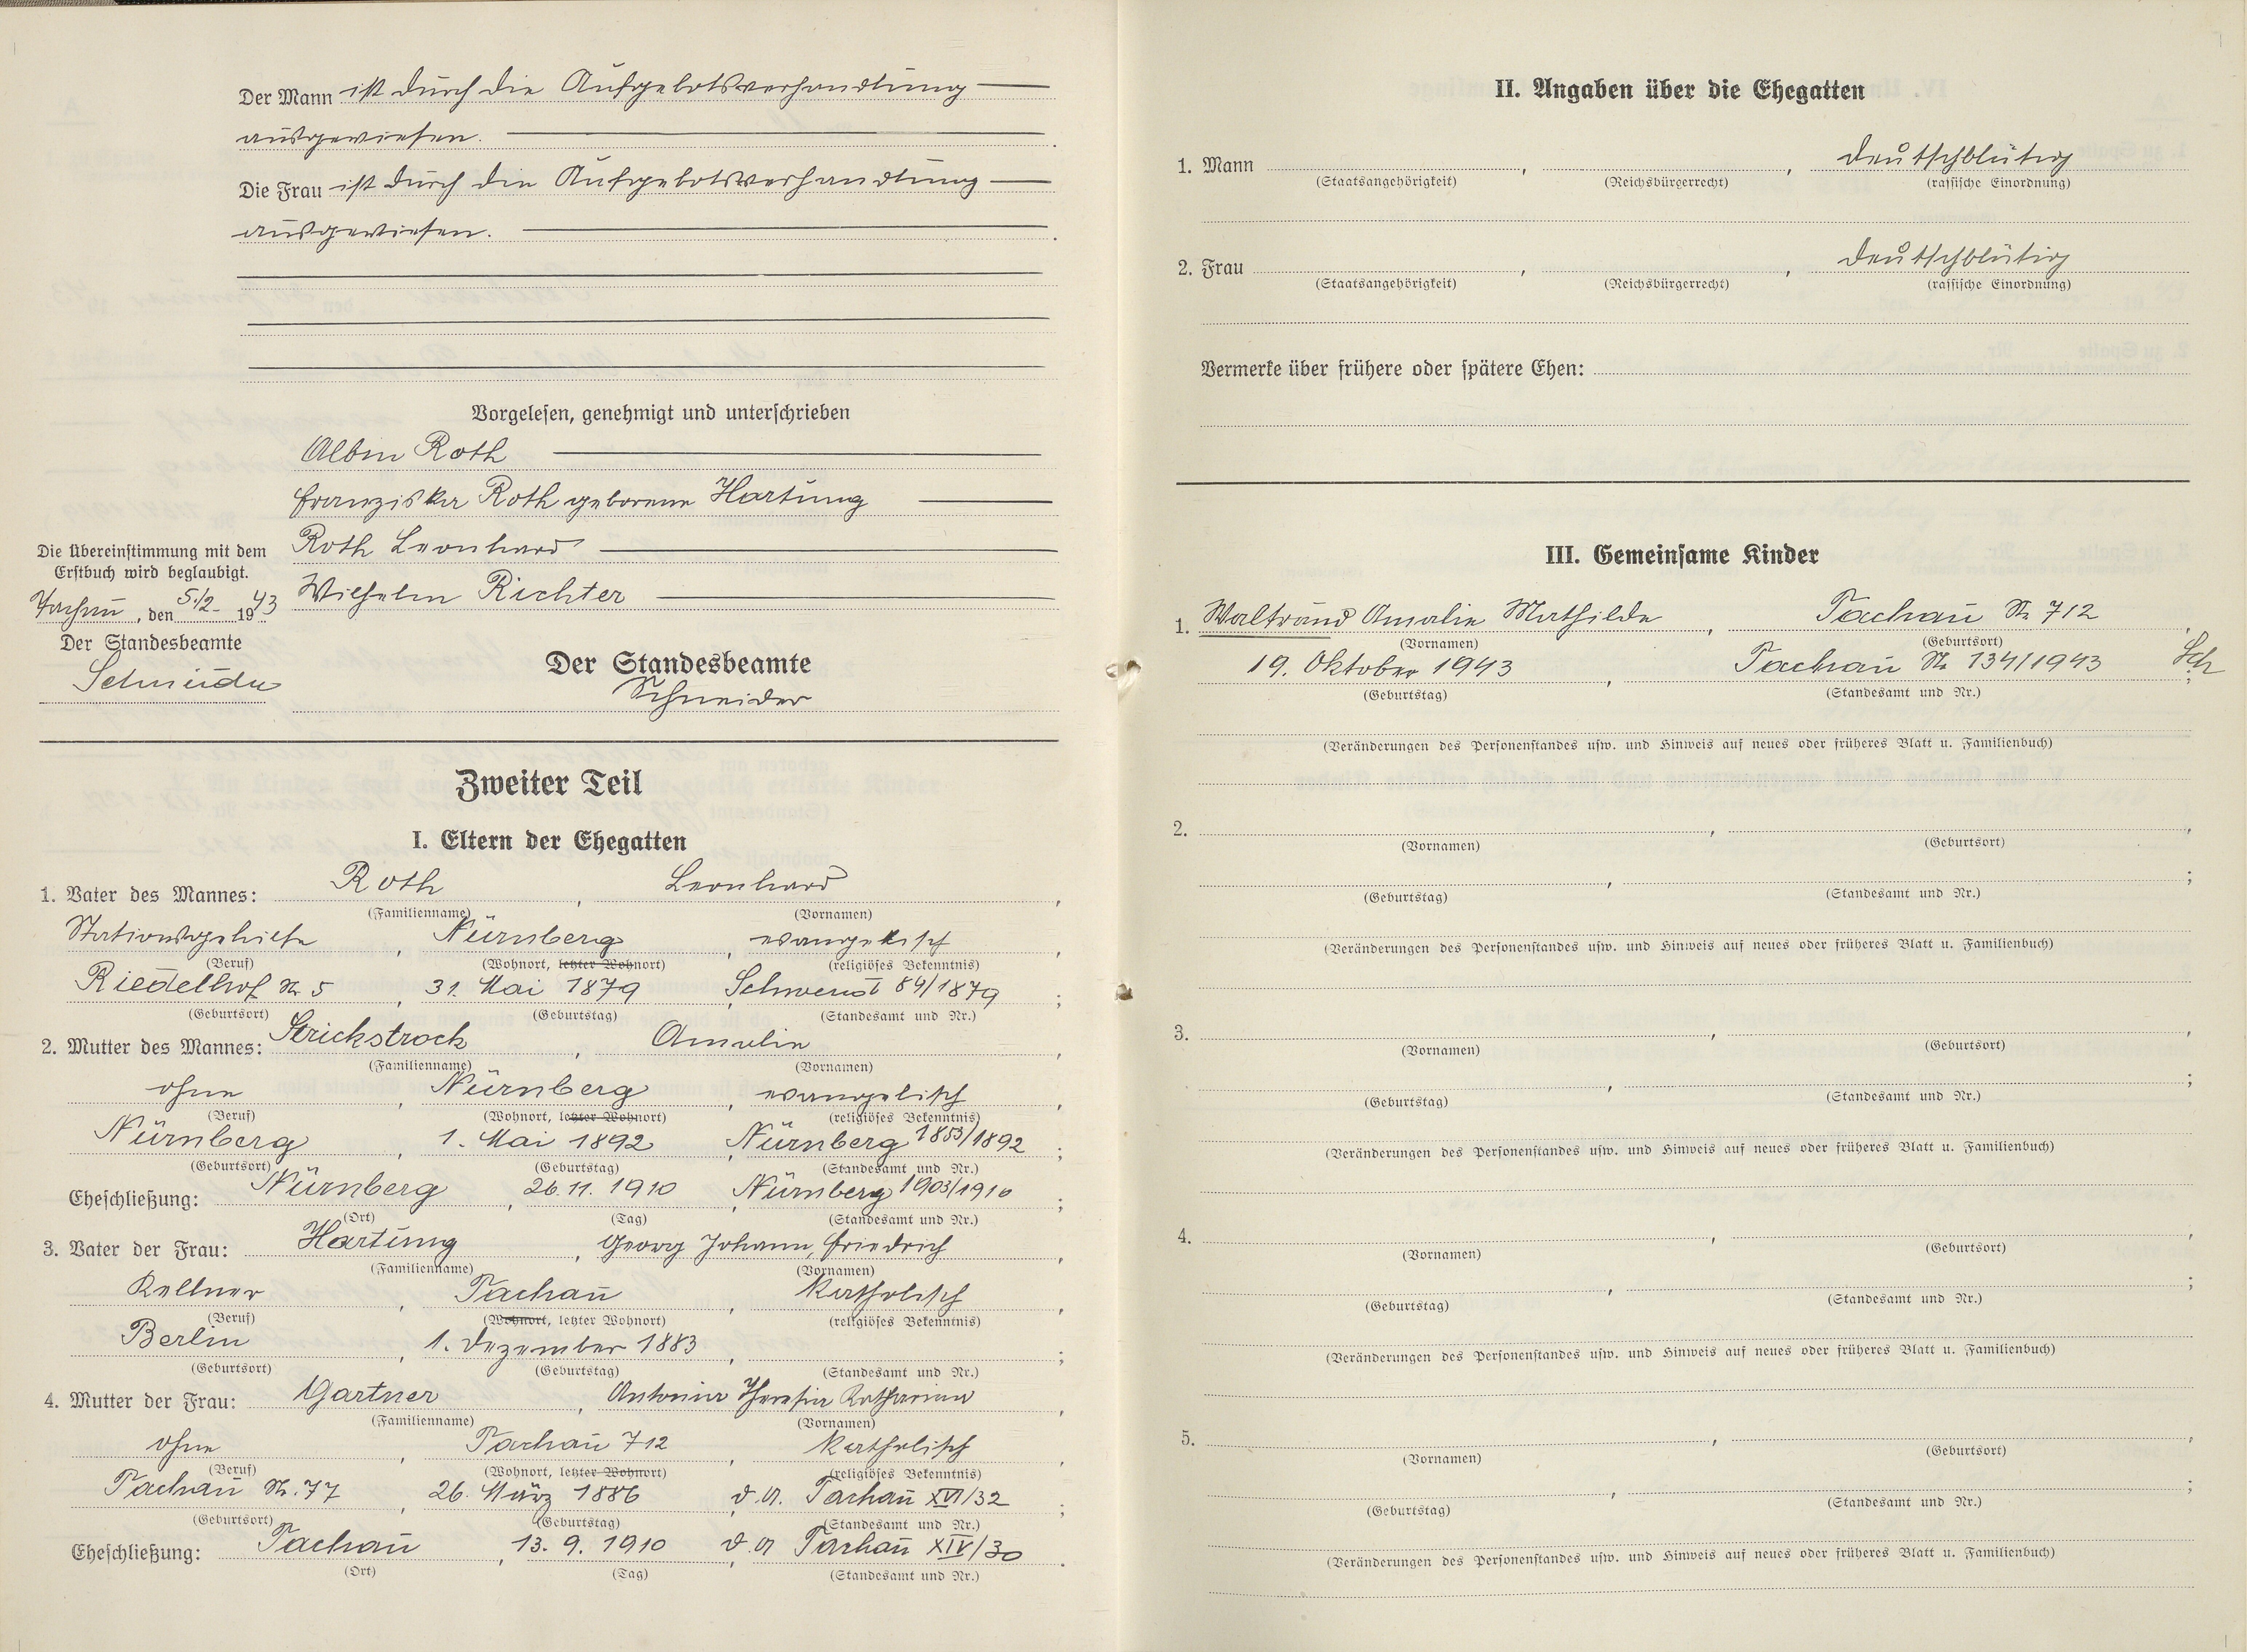 Der Mann ist durch die Aufgebotsverhandlung
ausgewiesen.
Die Frau ist durch die Aufgebotsverhandlung
ausgewiesen.
Vorgelesen, genehmigt und unterschrieben
Albin Roth
Franziska Roth geborene Hartung
Roth Leonhard
Wilhelm Richter
Die Übereinstimmung mit dem
Erstbuch wird beglaubigt.
Tachau, den 5./2. 1943
Der Standesbeamte
Schneider
Der Standesbeamte
Schneider
Zweiter Teil
I. Eltern der Ehegatten
1. Vater des Mannes: Roth, Leonhard,
(Familienname) (Vornamen)
Stationsgehilfe, Nürnberg, evangelisch,
(Beruf) (Wohnort, letzter Wohnort) (religiöses Bekenntnis)
Riedelhof Nr. 5, 31. Mai 1879, 89/1879;
(Geburtsort) (Geburtstag) (Standesamt und Nr.)
2. Mutter des Mannes: Strickstrock, Amalie,
(Familienname) (Vornamen)
ohne, Nürnberg, evangelisch,
(Beruf) (Wohnort, letzter Wohnort) (religiöses Bekenntnis)
Nürnberg, 1. Mai 1892, Nürnberg 1853/1892;
(Geburtsort) (Geburtstag) (Standesamt und Nr.)
Eheschließung: Nürnberg, 26.11.1910, Nürnberg 1903/1910;
(Ort) (Tag) (Standesamt und Nr.)
3. Vater der Frau: Hartung, Georg Johann, Friedrich,
(Familienname) (Vornamen)
Kellner, Tachau, katholisch,
(Beruf) (Wohnort, letzter Wohnort) (religiöses Bekenntnis)
Berlin, 1. Dezember 1883, ;
(Geburtsort) (Geburtstag) (Standesamt und Nr.)
4. Mutter der Frau: Gartner, Antonia Theresia Katharina,
(Familienname) (Vornamen)
ohne, Tachau 712, katholisch,
(Beruf) (Wohnort, letzter Wohnort) (religiöses Bekenntnis)
Tachau Nr. 77, 26. März 1886, d.A. Tachau XVI/32;
(Geburtsort) (Geburtstag) (Standesamt und Nr.)
Eheschließung: Tachau, 13. 9. 1910, d.A Tachau XIV/30.
(Ort) (Tag) (Standesamt und Nr.)
II. Angaben über die Ehegatten
1. Mann , , deutschblütig
(Staatsangehörigkeit) (Reichsbürgerrecht) (rassische Einordnung)
2. Frau , , deutschblütig
(Staatsangehörigkeit) (Reichsbürgerrecht) (rassische Einordnung)
Vermerke über frühere oder spätere Ehen:
III. Gemeinsame Kinder
1. Waltraud Amalie Mathilde, Tachau Nr. 712,
(Vornamen) (Geburtsort)
19. Oktober 1943, Tachau Nr. 134/1943; Sch
(Geburtstag) (Standesamt und Nr.)
(Veränderungen des Personenstandes usw. und Hinweis auf neues oder früheres Blatt u. Familienbuch)
2. , ,
(Vornamen) (Geburtsort)
, ;
(Geburtstag) (Standesamt und Nr.)
(Veränderungen des Personenstandes usw. und Hinweis auf neues oder früheres Blatt u. Familienbuch)
3. , ,
(Vornamen) (Geburtsort)
, ;
(Geburtstag) (Standesamt und Nr.)
(Veränderungen des Personenstandes usw. und Hinweis auf neues oder früheres Blatt u. Familienbuch)
4. , ,
(Vornamen) (Geburtsort)
, ;
(Geburtstag) (Standesamt und Nr.)
(Veränderungen des Personenstandes usw. und Hinweis auf neues oder früheres Blatt u. Familienbuch)
5. , ,
(Vornamen) (Geburtsort)
, ;
(Geburtstag) (Standesamt und Nr.)
(Veränderungen des Personenstandes usw. und Hinweis auf neues oder früheres Blatt u. Familienbuch)